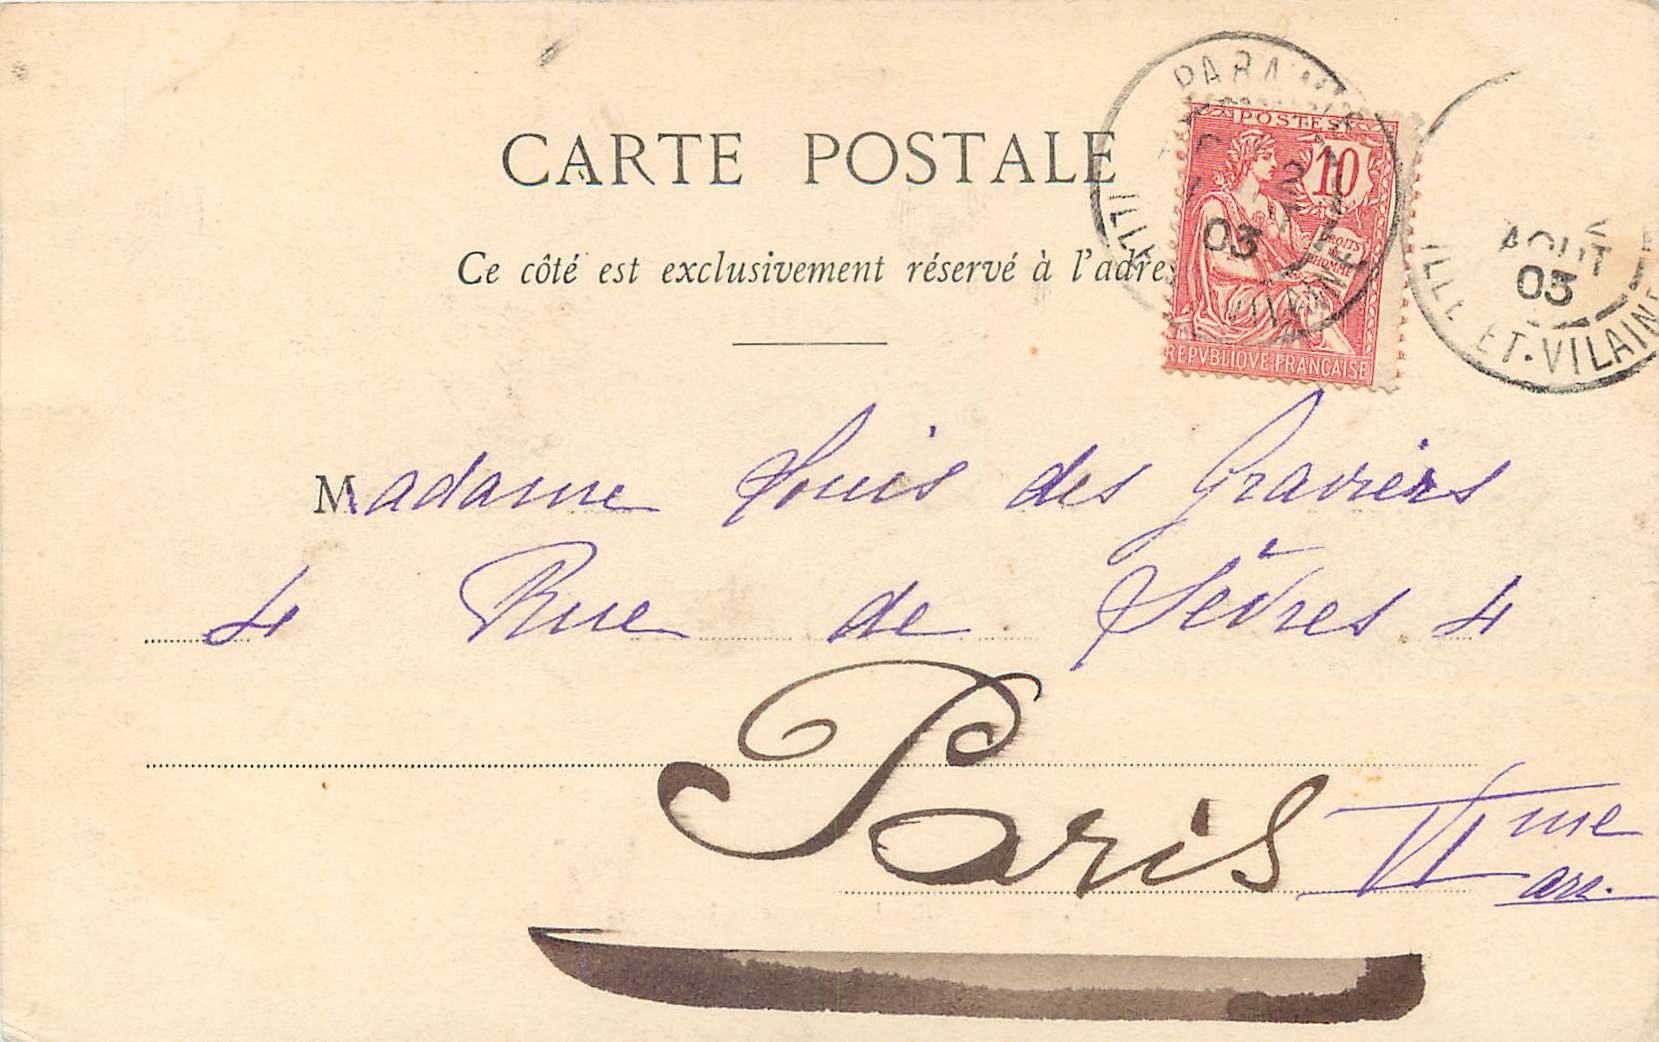 CARTE POSTALE
PARAMÉ
2
03
ILLE
VILAINE
POSTES
10
DROITS
HOMME
REPVBLIQVE FRANÇAISE
AOUT
03
ILLE ET-VILAINE
Ce côté est exclusivement réservé à l'adre
Madame Louis des Graviers
4 Rue de Sèvres 4
Paris VIme
arr.